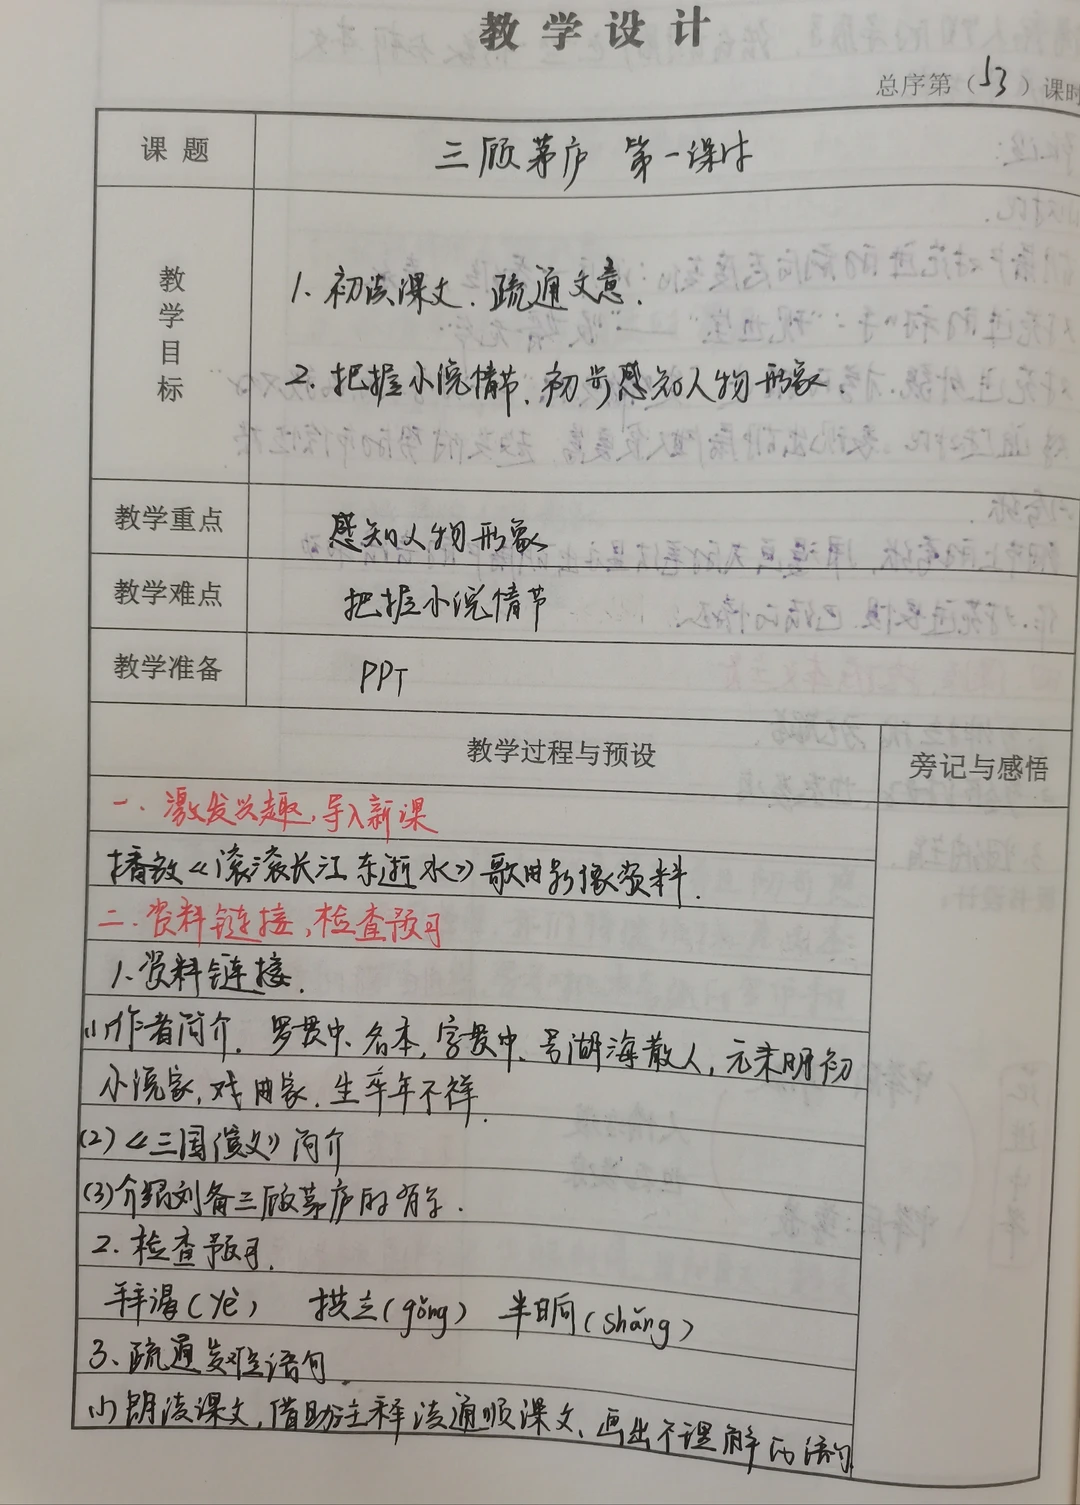 教学设计
总序第（53）课时
课题 三顾茅庐 第一课时
教学目标
1. 初读课文、疏通文意.
2. 把握小说情节、初步感知人物形象.
教学重点 感知人物形象
教学难点 把握小说情节
教学准备 PPT
教学过程与预设 旁记与感悟
一、激发兴趣,导入新课
播放《滚滚长江东逝水》歌曲影像资料.
二、资料链接,检查预习
1.资料链接.
(1)作者简介. 罗贯中、名本,字贯中、号湖海散人,元末明初
小说家,戏曲家.生卒年不祥.
(2)《三国演义》简介
(3)介绍刘备三顾茅庐的
2.检查预习.
(yè) 拱立(gǒng) 半晌(shǎng)
3、疏通发难语句.
(1)朗读课文,借助注释读通顺课文、画出不理解的语句